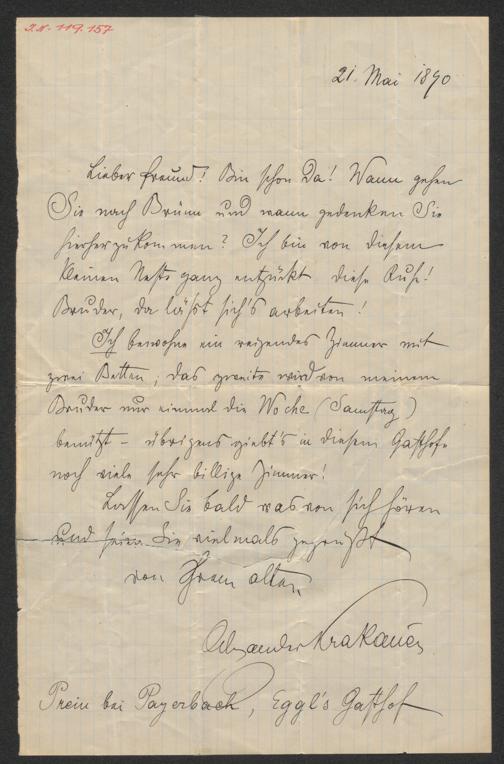 I.N. 119.157
21. Mai 1890
Lieber Freund! Bin schon da! Wann gehen
Sie nach Brünn und wann gedenken Sie
hierherzukommen? Ich bin von diesem
kleinen Neste ganz entzückt diese Ruhe!
Bruder, da läßt sich's arbeiten!
Ich bewohne ein reizendes Zimmer mit
zwei Betten, das zweite wird von meinem
Bruder nur einmal die Woche (Samstag)
benützt – übrigens giebt's in diesem Gasthofe
noch viele sehr billige Zimmer!
Lassen Sie bald was von sich hören
und seien Sie vielmals gegrüßt
von Ihrem alten
Alexander Krakauer
Prein bei Payerbach, Eggl's Gasthof